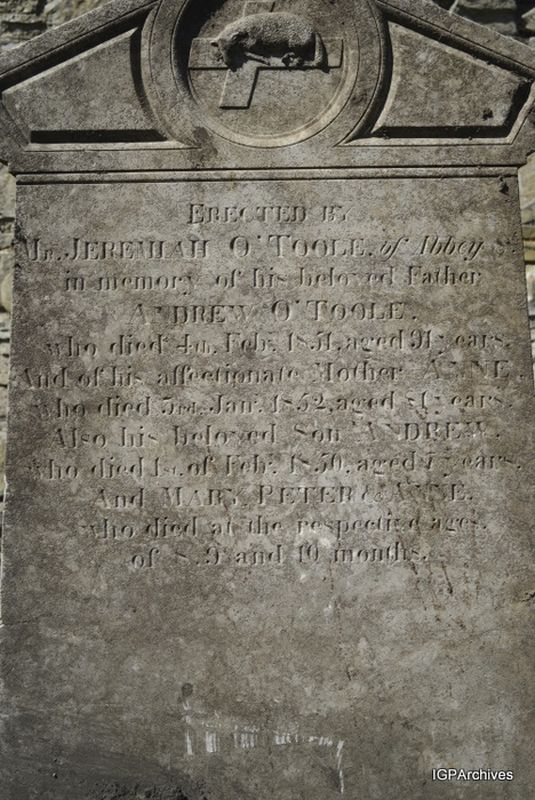 ERECTED BY
Mr. JEREMIAH O'TOOLE, of Abbey St.
in memory of his beloved Father
ANDREW O'TOOLE.
who died 4th. Feby. 1851, aged 91 years.
And of his affectionate Mother ANNE.
who died 3rd. Jany. 1852, aged years.
Also his beloved Son ANDREW.
who died 1st. of Feby. 1850, aged years.
And MARY, PETER & ANNE.
who died at the respective ages.
of 8. 9 and 10 months.
IGPArchives